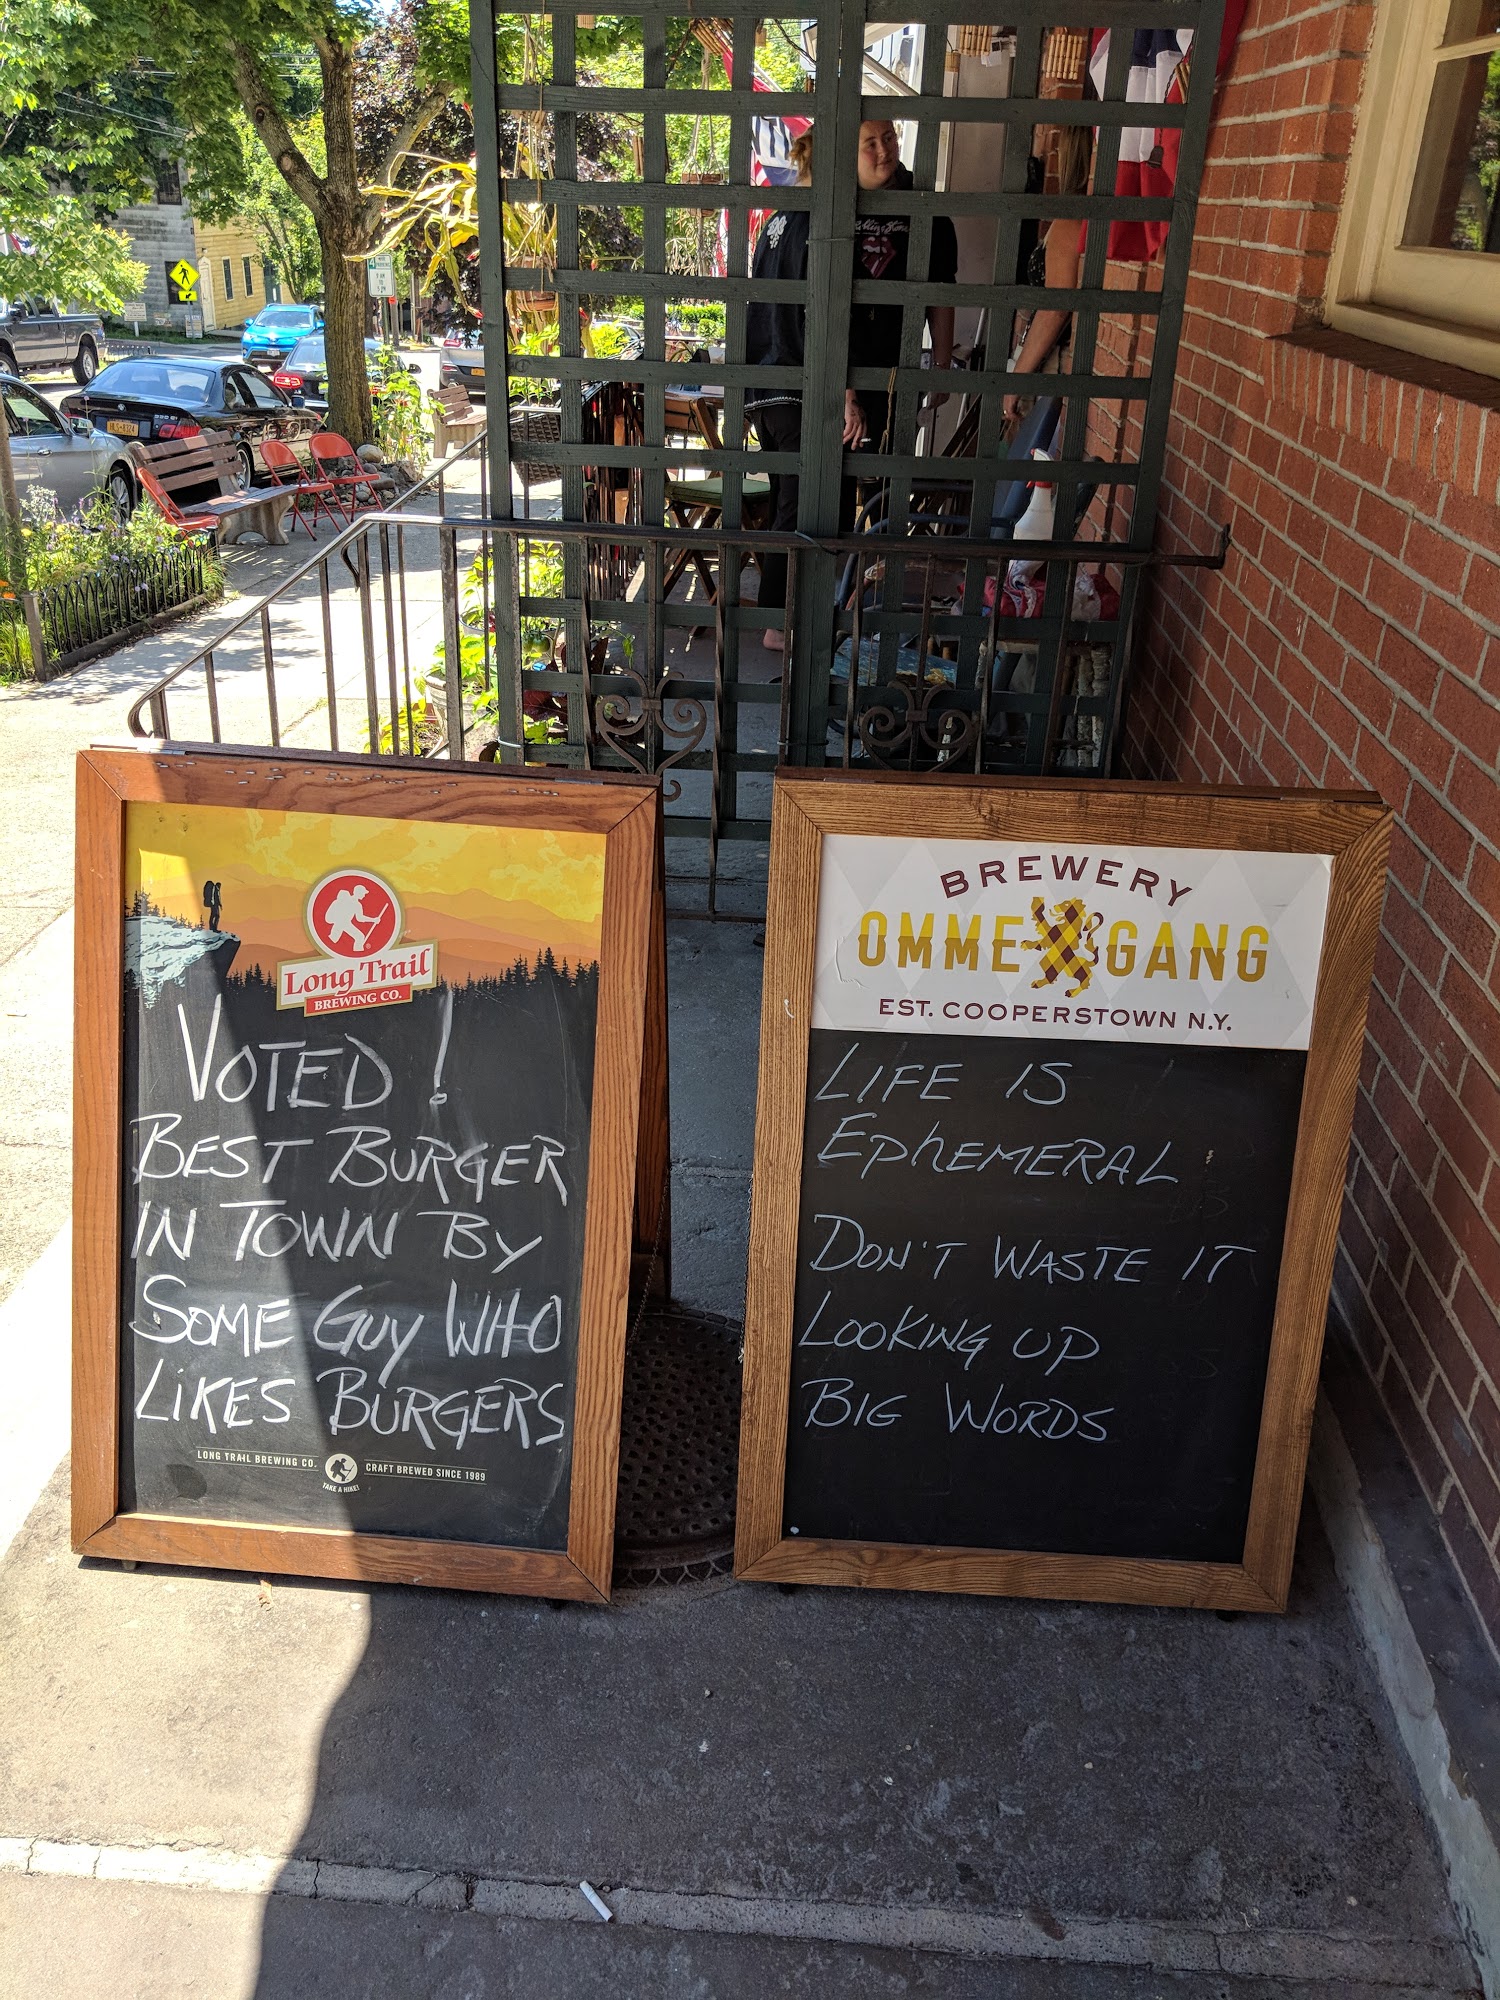 Long Trail
BREWING CO.
VOTED!
BEST BURGER
IN TOWN BY
SOME GUY WHO
LIKES BURGERS
LONG TRAIL BREWING CO.
CRAFT BREWED SINCE 1989
TAKE A HIKE!
BREWERY
OMMEGANG
EST. COOPERSTOWN N.Y.
LIFE IS
EPhEMERAL
DON'T WASTE IT
LOOKING UP
BIG WORDS